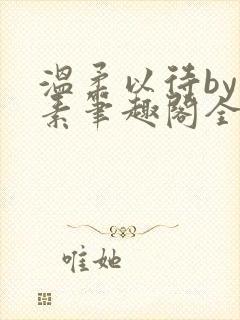 温柔以待by
素笔趣阁全
唯她